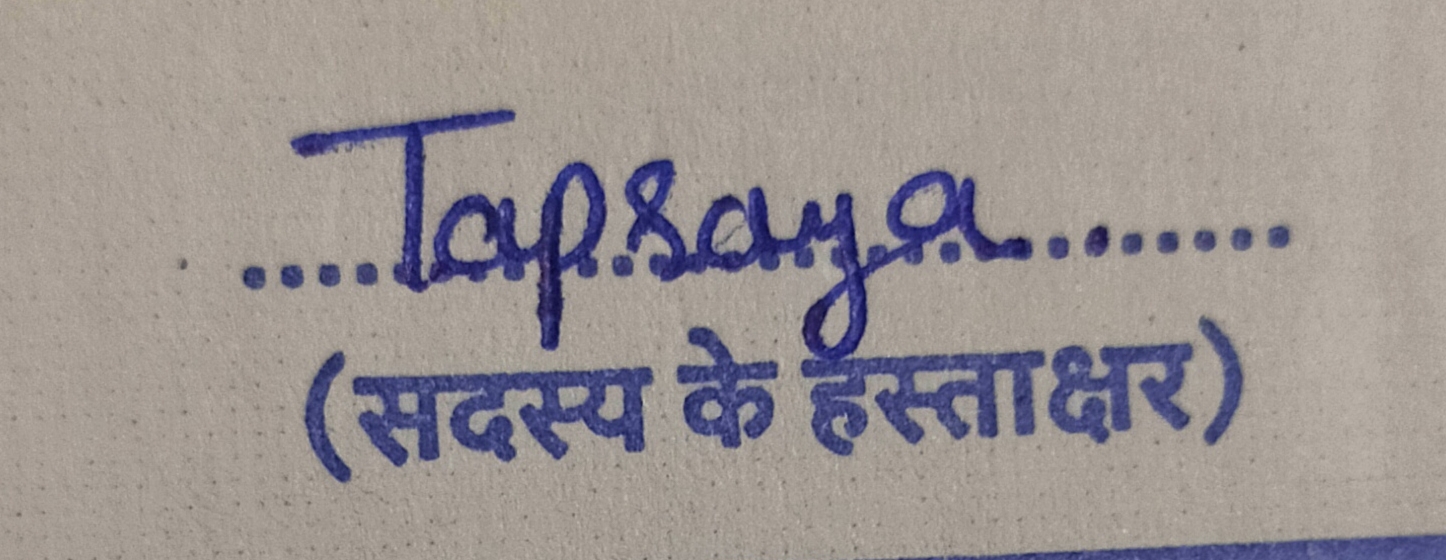 Tapsaya
(सदस्य के हस्ताक्षर)